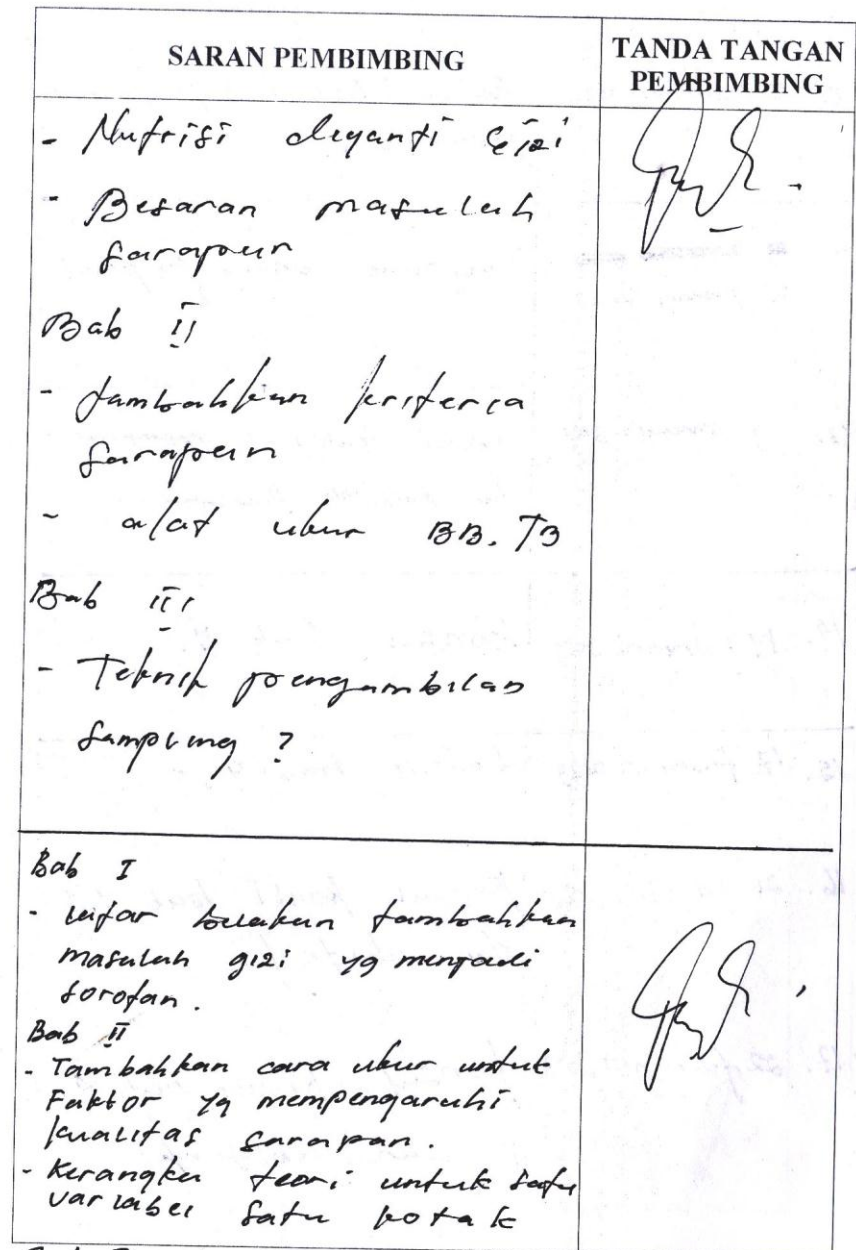 SARAN PEMBIMBING
TANDA TANGAN
PEMBIMBING
- Nutrisi diganti Gizi
- Besaran masalah
sarapan
Bab II
- tambahkan kriteria
sarapan
- alat ukur BB. TB
Bab III
- Teknik pengambilan
sampling ?
Bab I
- latar belakan tambahkan
masalah gizi yg menjadi
sorotan.
Bab II
- Tambahkan cara ukur untuk
Faktor yg mempengaruhi
kualitas sarapan.
- Kerangka teori untuk satu
variabel satu kotak